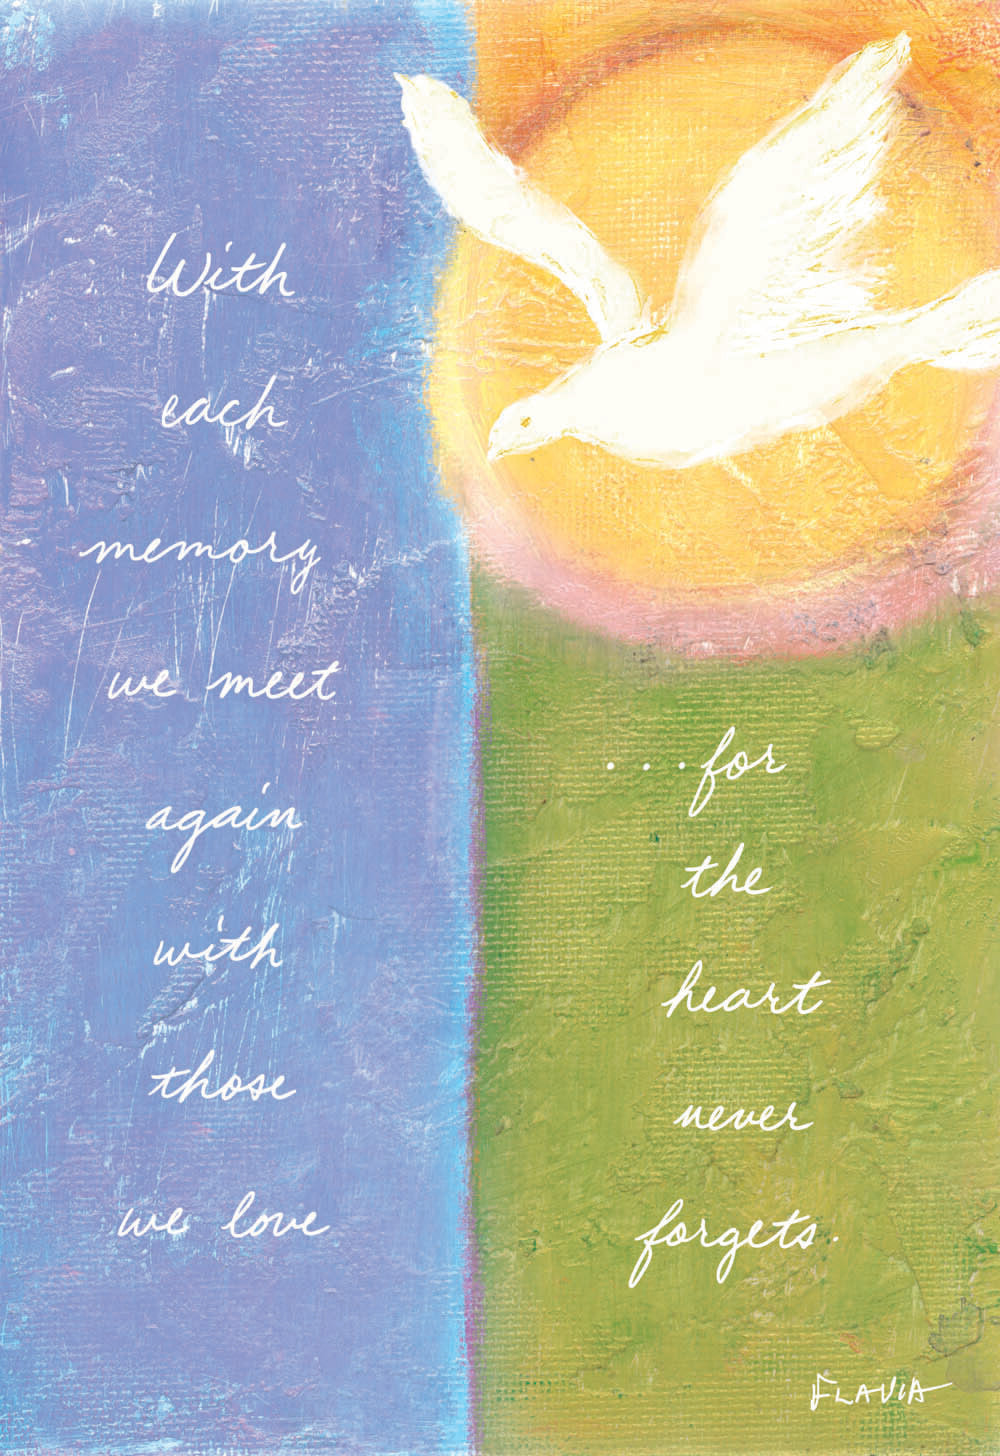 With
each
memory
we meet
again
with
those
we love
....for
the
heart
never
forgets.
FLAVIA